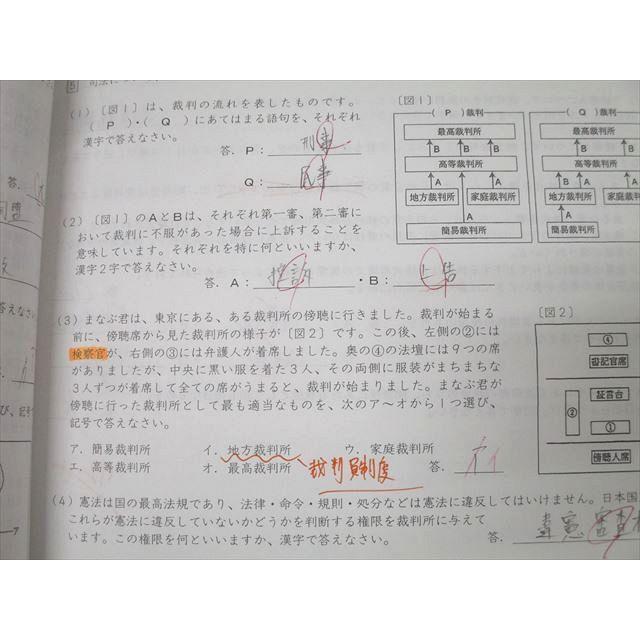 5
(1)〔図1〕は、裁判の流れを表したものです。
( P )・( Q )にあてはまる語句を、それぞれ
漢字で答えなさい。
答．P： 刑事
Q： 民事
(2)〔図1〕のAとBは、それぞれ第一審、第二審に
おいて裁判に不服があった場合に上訴することを
意味しています。それぞれを特に何といいますか、
漢字2字で答えなさい。
答．A： 控訴 ・B： 上告
〔図1〕
( P )裁判
最高裁判所
B B
高等裁判所
A A
地方裁判所 家庭裁判所
A
簡易裁判所
( Q )裁判
最高裁判所
B B
高等裁判所
A A
地方裁判所 家庭裁
A
簡易裁判所
(3)まなぶ君は、東京にある、ある裁判所の傍聴に行きました。裁判が始まる
前に、傍聴席から見た裁判所の様子が〔図2〕です。この後、左側の②には
検察官が、右側の③には弁護人が着席しました。奥の④の法壇には9つの席
がありましたが、中央に黒い服を着た3人、その両側に服装がまちまちな
3人ずつが着席して全ての席がうまると、裁判が始まりました。まなぶ君が
傍聴に行った裁判所として最も適当なものを、次のア～オから1つ選び、
記号で答えなさい。
ア．簡易裁判所 イ．地方裁判所 ウ．家庭裁判所
エ．高等裁判所 オ．最高裁判所 答． オ イ
裁判員制度
〔図2〕
④
書記官席
証言台
②
①
傍聴人席
(4)憲法は国の最高法規であり、法律・命令・規則・処分などは憲法に違反してはいけません。日本国
これらが憲法に違反していないかどうかを判断する権限を裁判所に与えて
います。この権限を何といいますか、漢字で答えなさい。
答． 憲審査
7